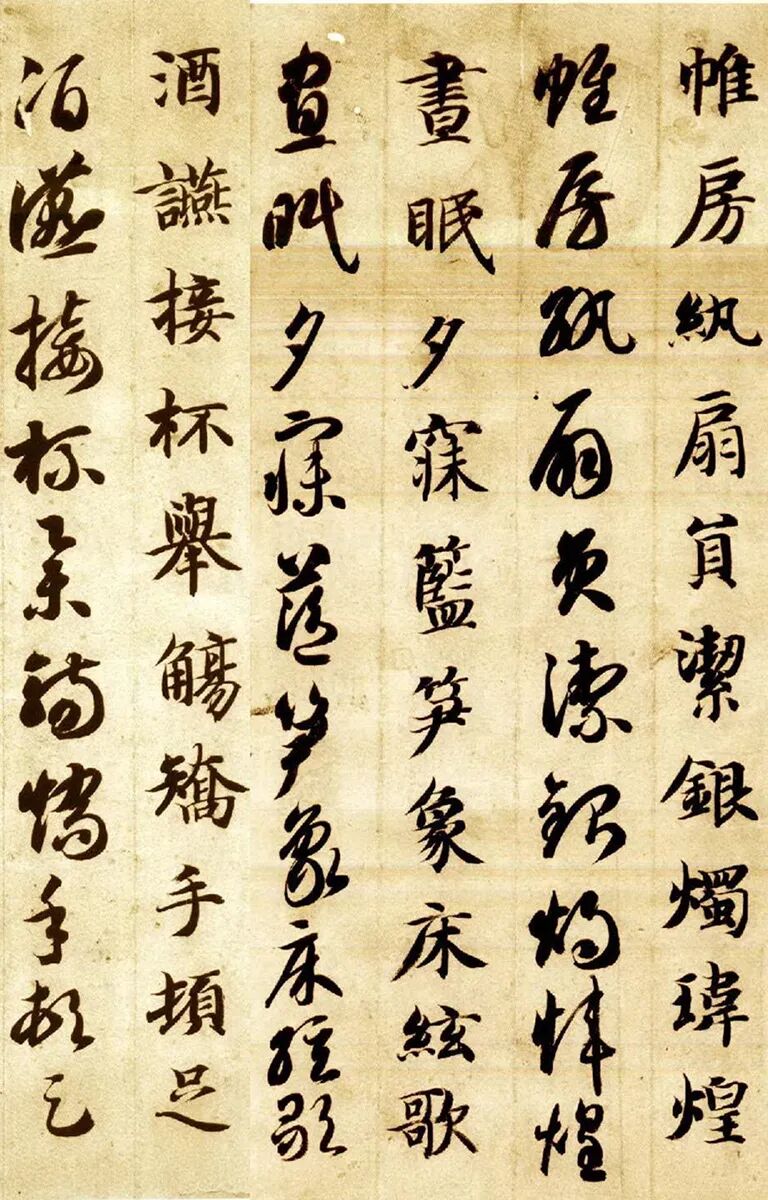 帷房紈扇員潔銀燭瑋煌
帷房紈扇員潔銀燭煒煌
晝眠夕寐籃笋象床絃歌
晝眠夕寐藍笋象床絃歌
酒讌接杯舉觴矯手頓足
酒讌接杯舉觴矯手頓足